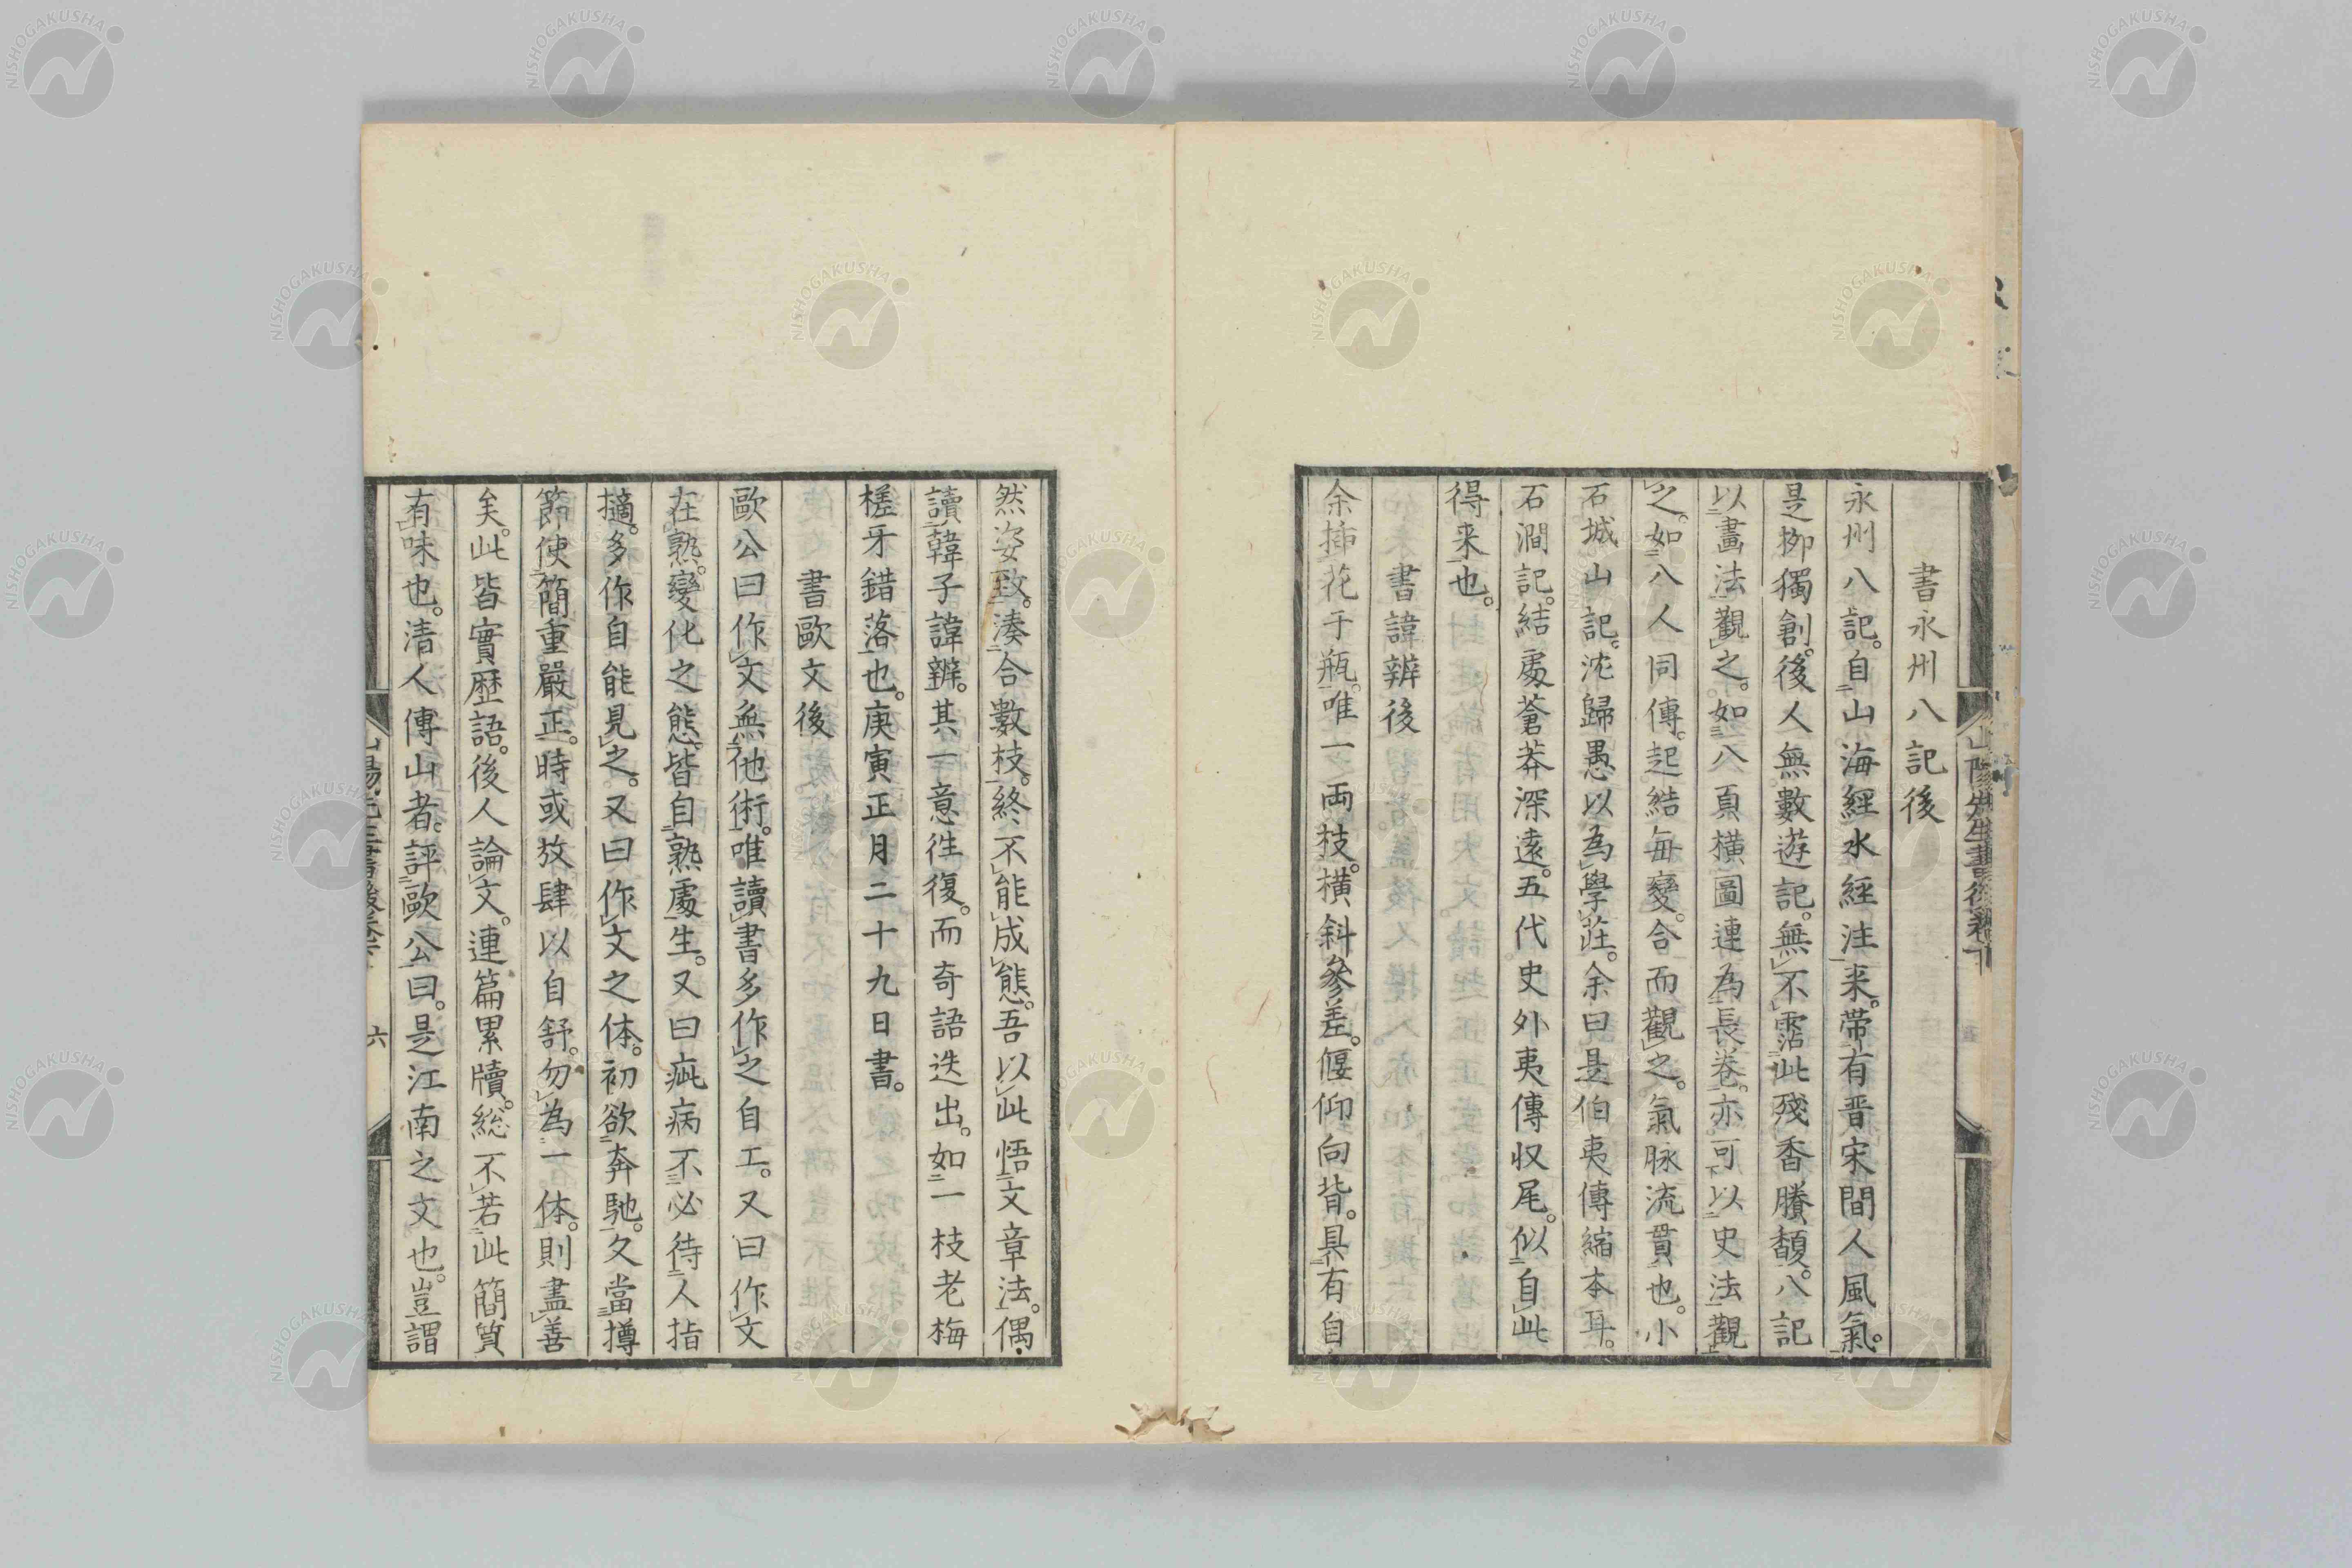 書永州八記後
永州八記。自山海經水經注来。帯有晋宋間人風氣。
是柳獨創。後人無數遊記。無不霑此殘香賸馥。八記
以畫法觀之。如八頁横圖連為長巻。亦可以史法觀
之。如八人同傳。起結每變。合而觀之。氣脉流貫也。小
石城山記。沈歸愚以為學莊。余曰是伯夷傳縮本耳。
石澗記。結處蒼莽深遠。五代史外夷傳収尾。似自此
得来也。
書諱辨後
余挿花于瓶。唯一両枝。横斜參差。偃仰向背。具有自
然姿致。湊合數枝。終不能成態。吾以此悟文章法。偶
讀韓子諱辨。其一意徃復。而奇語迭出。如一枝老梅
槎牙錯落也。庚寅正月二十九日書。
書歐文後
歐公曰作文無他術。唯讀書多作之自工。又曰作文
在熟。變化之態。皆自熟處生。又曰疵病不必待人指
擿。多作自能見之。又曰作文之体。初欲奔馳。久當撙
節使簡重嚴正。時或放肆以自舒。勿為一体。則盡善
矣。此皆實歴語。後人論文。連篇累牘。総不若此簡質
有味也。清人傳山者。評歐公曰。是江南之文也。豈謂
六
NISHOGAKUSHA